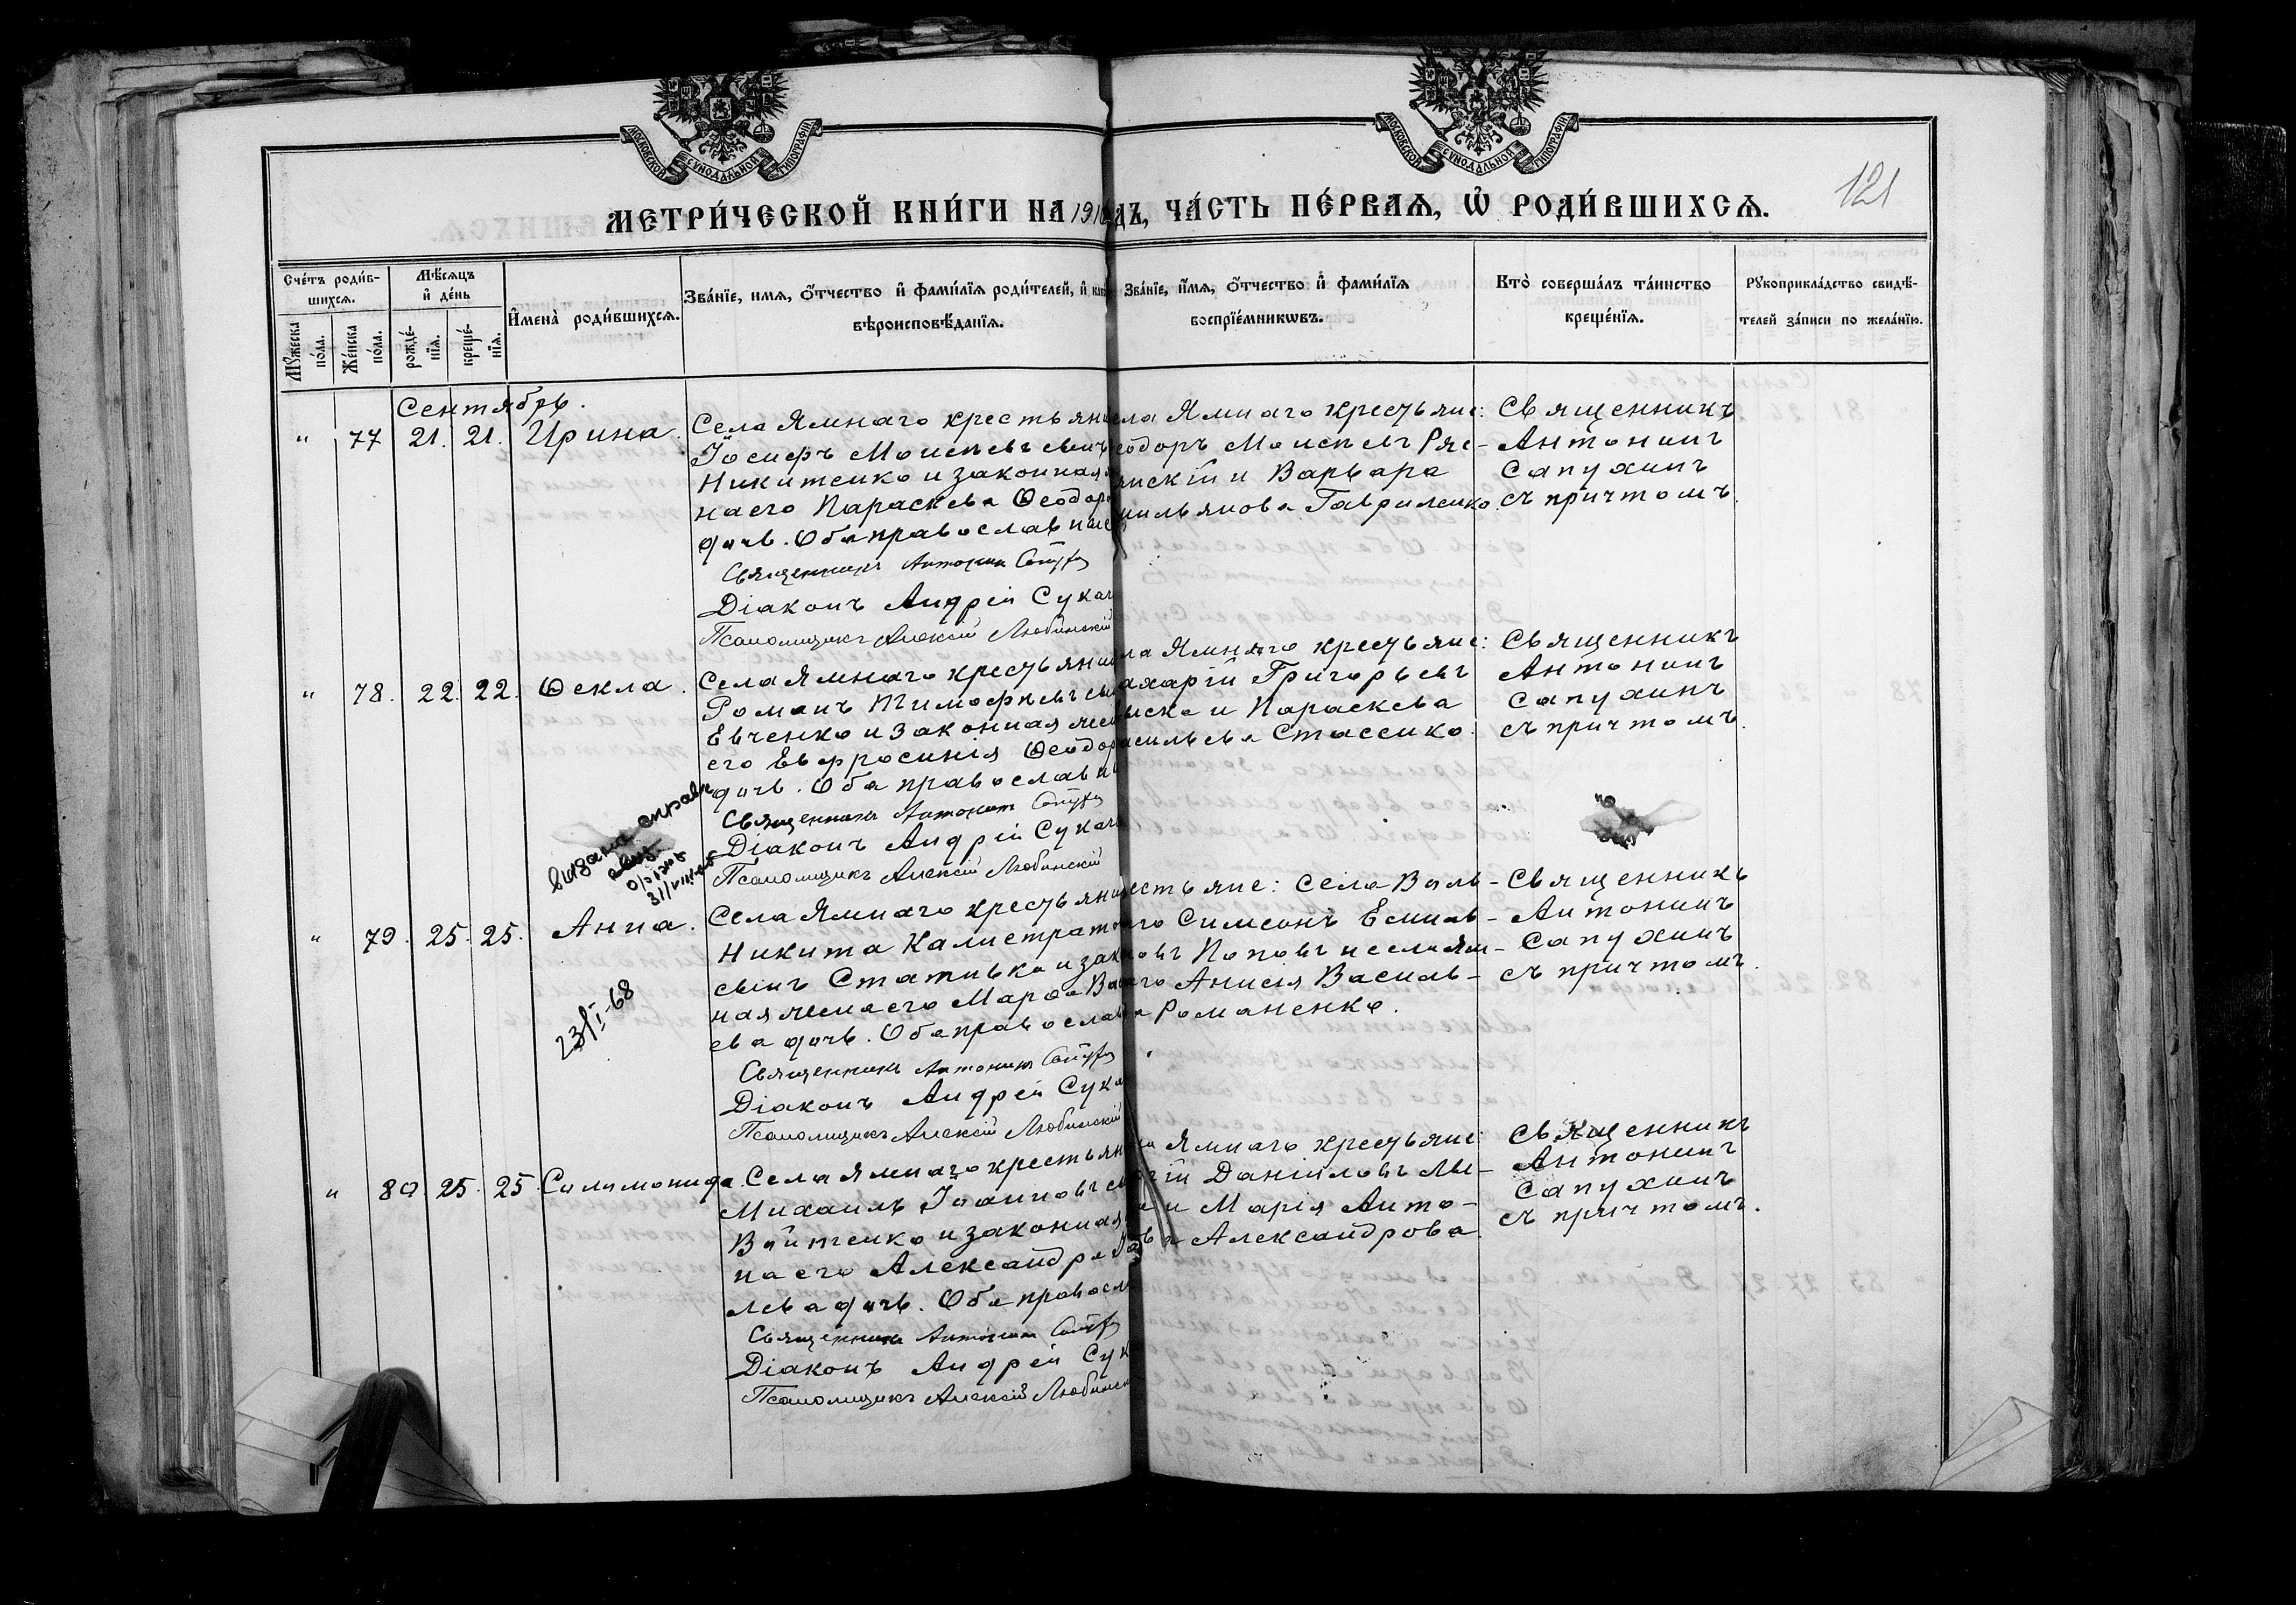 МОСКОВСКОЙ СѴНОДАЛЬНОЙ ТИПОГРАФІИ
МОСКОВСКОЙ СѴНОДАЛЬНОЙ ТИПОГРАФІИ
121
МЕТРИ́ЧЕСКОЙ КНИ́ГИ НА 191 ДЪ, ЧА́СТЬ ПЕ́РВАѦ, Ѡ РОДИ́ВШИХСѦ.
Сче́тъ роди́в-
шихсѧ.
Мꙋ́жеска по́ла.
Же́нска по́ла.
Мѣ́сѧцъ
и де́нь
рожде́-
нїѧ.
креще́-
нїѧ.
Имена̀ роди́вшихсѧ.
Зва́нїе, имѧ, о́тчество и фами́лїѧ роди́телей, и
вѣроисповѣ́данїѧ.
Зва́нїе, и́мѧ, о́тчество и фами́лїѧ
воспрїе́мникѡвъ.
Кто̀ соверша́лъ та́инство
креще́нїѧ.
Рꙋкоприкла́дство свидѣ́-
телей за́писи по жела́нїю.
Сентябрь.
" 77 21. 21. Ирина.
Села Ямнаго крестьянин
Іосифъ Моисеевъ сынъ
Никитенко и законная
на его Параскева Ѳеодор
дочь. Оба православные
Священникъ Антонин Сапух
Діаконъ Андрей Сукач
Псаломщикъ Алексій Любинскій
ела Ямнаго крестьяне:
еодоръ Моисеевъ Ряс-
янскій и Варвара
мильянова Гавриленко.
Священникъ
Антонинъ
Сапухинъ
съ причтомъ.
" 78. 22. 22. Ѳекла.
Села Ямнаго крестьянин
Романъ Тимофеевъ сын
Евченко и законная жен
его Евфросинія Ѳеодор
дочь. Оба православн
Священникъ Антонин Сапух
Діаконъ Андрей Сукач
Псаломщикъ Алексій Любинскій
ла Ямнаго крестьяне:
ахарій Григорьевъ
и Параскева
асильева Стасенко.
Священникъ
Антонинъ
Сапухинъ
съ причтомъ.
выдана справк
" 79. 25. 25. Анна.
23/I-68
Села Ямнаго крестьянин
Никита Калистратов
сынъ Стативка и закон
ная жена его Марѳа Ва
ева дочь. Оба православ
Священникъ Антонин Сапух
Діаконъ Андрей Сука
Псаломщикъ Алексій Любинскій
естьяне: села Воль-
го Симеонъ Емиль-
новъ Поповъ и села Ям-
аго Анисія Василь-
а Романенко.
Священникъ
Антонинъ
Сапухинъ
съ причтомъ.
" 80. 25. 25. Саломонида.
Села Ямнаго крестьян
Михаилъ Іоанновъ с
Войтенко и законная
на его Александра
лева дочь. Оба правосл
Священникъ Антонин Сапух
Діаконъ Андрей Сук
Псаломщикъ Алексій Любинск
Ямнаго крестьяне:
гій Даніиловъ Лы-
и Марія Анто-
Александрова.
Священникъ
Антонинъ
Сапухинъ
съ причтомъ.